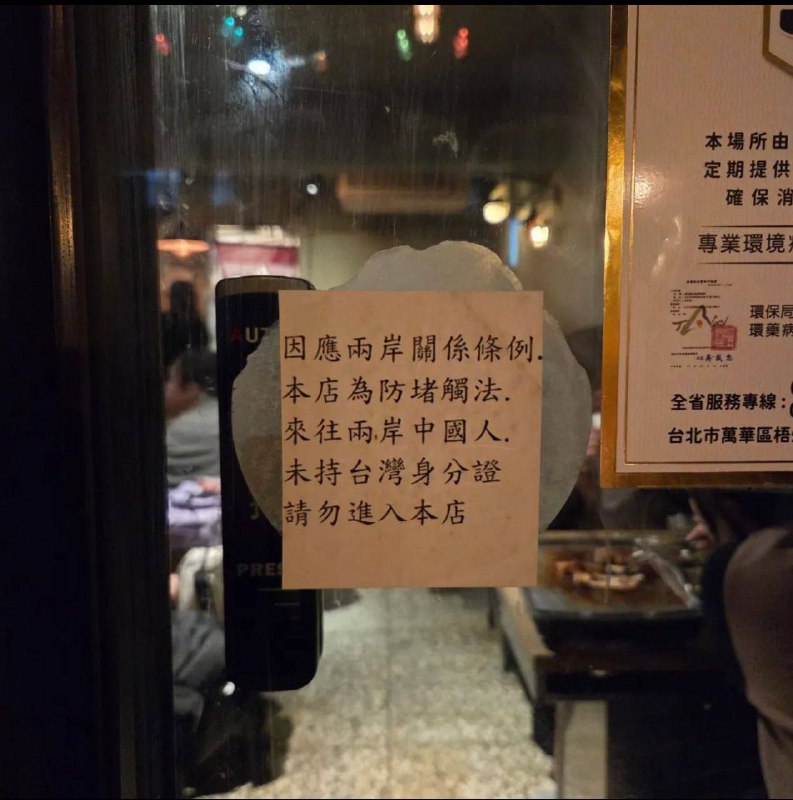 因應兩岸關係條例.
本店為防堵觸法.
來往兩岸中國人.
未持台灣身分證
請勿進入本店
AUT
PRES
本場所由
定期提供
確保消
專業環境
環保局
環藥病
全省服務專線：
台北市萬華區梧